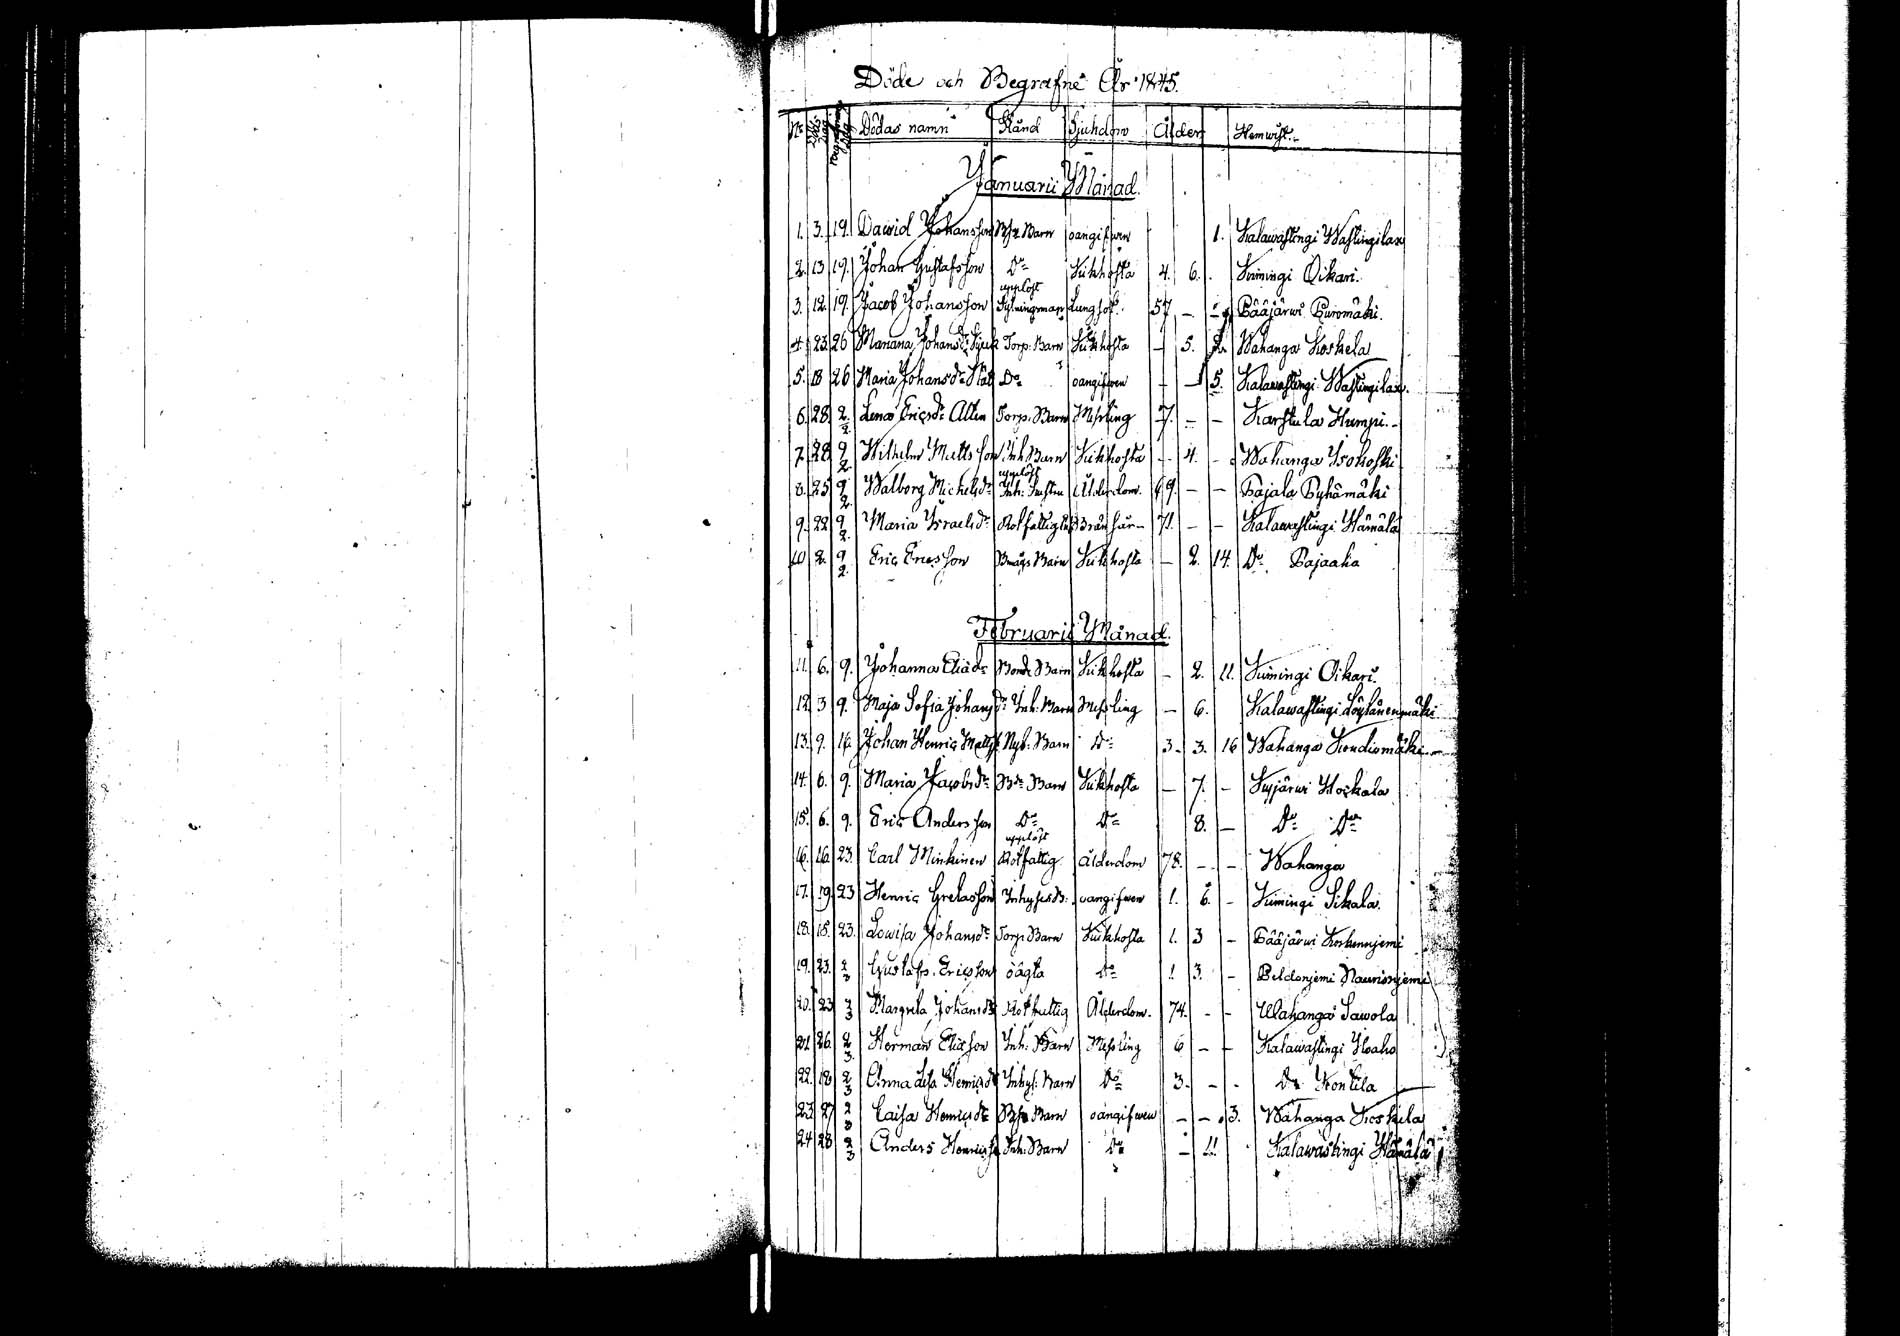 Döde och Begrafne År 1845.
No Dödas namn Stånd Sjukdom Ålder Hemwist
Januarii Månad.
1. 3. 19. Dawid Johansson Barn oangifwen 1. Kalawastingi Wastingilax
2. 13 19. Johan Gustafsson Do Kikhosta 4. 6. Kimingi Oikari.
3. 12. 19. Jacob Johansson Lungsot. 57 Pääjärwi Puromäki.
4. 23. 26 Mariana Johansdr Torp. Barn Kikhosta - 5. 2. Wahanga Koskela
5. 18 26 Maria Johansdr Do oangifwen - - 5. Kalawastingi Wastingilax.
6. 28. 2/2 Lena Ericsdr Torp. Barn Messling 7. - - Karstula Humpi.
7. 28. 9/2 Wilhelm Mattsson Inh. Barn Kikhosta - 4. - Wahanga Isokoski
upplöst
8. 25 9/2 Walborg Michelsdr Inh. Ålderdom. 69. - - Pajala Pyhämäki
9. 28 9/2 Maria Israelsdr 71. - - Kalawastingi Hämälä
10 2. 9/2 Eric Ericsson Barn Kikhosta - 2. 14. Do Pajaaho
Februarii Månad.
11. 6. 9. Johanna Eliädr Bonde Barn Kikhosta - 2. 11. Kimingi Oikari.
12. 3 9. Maja Sofia Johansdr Inh. Barn Messling - 6. Kalawastingi
13. 9. 16. Johan Henric Mattss. Nyb. Barn Do 3. 3. 16 Wahanga Kondiomäki
14. 6. 9. Maria Jacobsdr Bde Barn Kikhosta - 7. - Kyjärwi Hokkala
15. 6. 9. Eric Andersson Do Do 8. - Do Do
upplöst
16. 16. 23. Carl Minkinen Rotfattig Ålderdom 78. - - Wahanga
17. 19. 23 Henric Gretasson Inhyses B. oangifwen 1. 6. - Kimingi Sikala.
18. 15. 23. Lowisa Johansdr Torp. Barn Kikhosta 1. 3 - Pääjärwi Koskennjemi
19. 23. 2/3 Gustaf Ericsson oägta Do 1. 3. -
20. 23 2/3 Margreta Johansdr Rotfattig Ålderdom. 74. - - Wahanga Sawola
21 26. 2/3 Herman Eliasson Inh. Barn Messling 6 - - Kalawastingi Ahoaho
22. 18 2/3 Anna Lisa Henricsdr Inhys. Barn Do 3. - - Do Kontila
23 27 2/3 Caisa Henricsdr Barn oangifwen - - 3. Wahanga Koskela
24 28 2/3 Anders Henricss. Inh. Barn Do - 11. Kalawastingi Hämälä